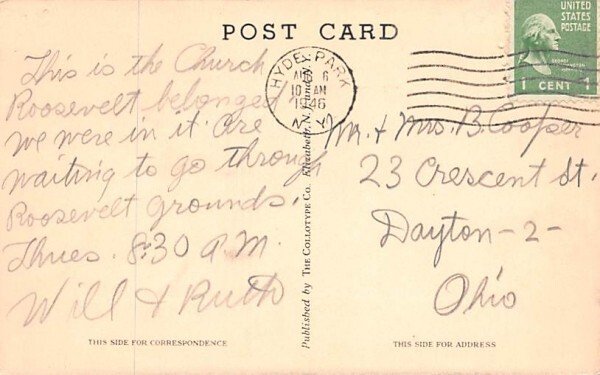 POST CARD
UNITED
STATES
POSTAGE
1 CENT 1
HYDE PARK
AUG 6
10 AM
1946
N.Y.
This is the Church
Roosevelt belonged
we were in it. Are
waiting to go through
Roosevelt grounds.
Thues. 8:30 A.M.
Will & Ruth
Mr. & Mrs. B. Cooper
23 Crescent St.
Dayton-2-
Ohio
Published by THE COLLOTYPE CO. Elizabeth, N.J.
THIS SIDE FOR CORRESPONDENCE
THIS SIDE FOR ADDRESS